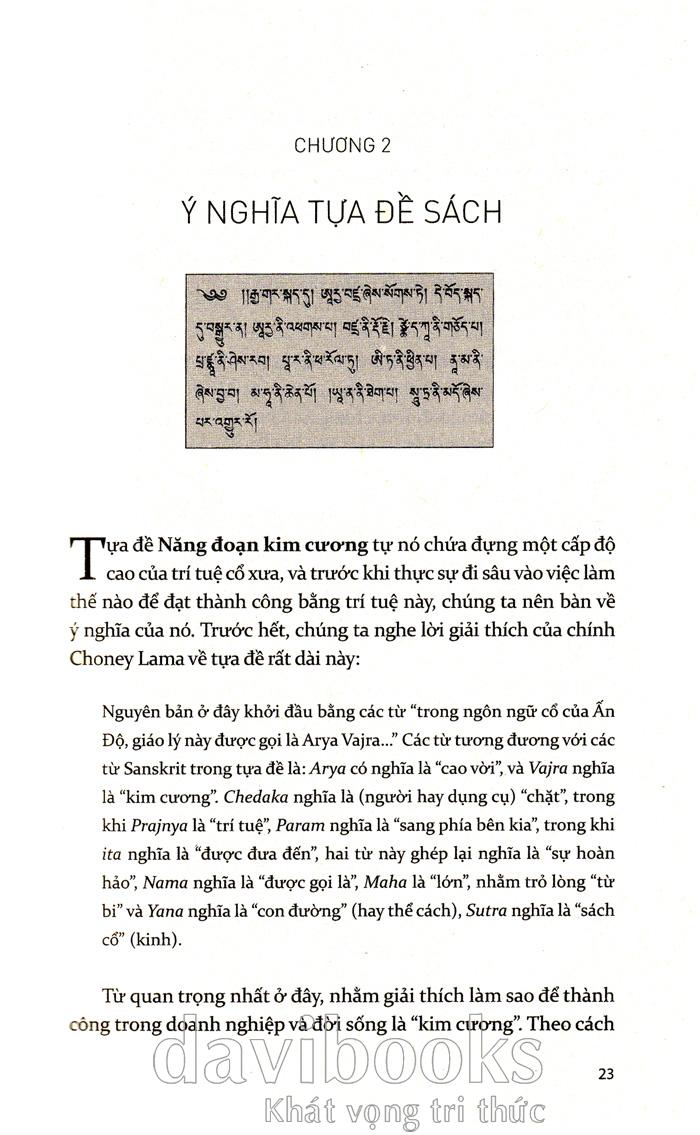 CHƯƠNG 2
Ý NGHĨA TỰA ĐỀ SÁCH
༄༅ །།རྒྱ་གར་སྐད་དུ། ཨཱརྱ་བཛྲ་ཞེས་སོགས་ཏེ། དེ་བོད་སྐད་
དུ་བསྒྱུར་ན། ཨཱརྱ་ནི་འཕགས་པ། བཛྲ་ནི་རྡོ་རྗེ། ཙྪེ་ད་ཀཱ་ནི་གཅོད་པ།
པྲ་ཛྙཱ་ནི་ཤེས་རབ། པཱ་ར་ནི་ཕ་རོལ་ཏུ། ཨི་ཏ་ནི་ཕྱིན་པ། ནཱ་མ་ནི་
ཞེས་བྱ་བ། མ་ཧཱ་ནི་ཆེན་པོ། །ཡཱ་ན་ནི་ཐེག་པ། སཱུ་ཏྲ་ནི་མདོ་ཞེས་
པར་འགྱུར་རོ།
Tựa đề Năng đoạn kim cương tự nó chứa đựng một cấp độ
cao của trí tuệ cổ xưa, và trước khi thực sự đi sâu vào việc làm
thế nào để đạt thành công bằng trí tuệ này, chúng ta nên bàn về
ý nghĩa của nó. Trước hết, chúng ta nghe lời giải thích của chính
Choney Lama về tựa đề rất dài này:
Nguyên bản ở đây khởi đầu bằng các từ “trong ngôn ngữ cổ của Ấn
Độ, giáo lý này được gọi là Arya Vajra...” Các từ tương đương với các
từ Sanskrit trong tựa đề là: Arya có nghĩa là “cao vời”, và Vajra nghĩa
là “kim cương”. Chedaka nghĩa là (người hay dụng cụ) “chặt”, trong
khi Prajnya là “trí tuệ”, Param nghĩa là “sang phía bên kia”, trong khi
ita nghĩa là “được đưa đến”, hai từ này ghép lại nghĩa là “sự hoàn
hảo”, Nama nghĩa là “được gọi là”, Maha là “lớn”, nhằm trỏ lòng “từ
bi” và Yana nghĩa là “con đường” (hay thể cách), Sutra nghĩa là “sách
cổ” (kinh).
Từ quan trọng nhất ở đây, nhằm giải thích làm sao để thành
công trong doanh nghiệp và đời sống là “kim cương”. Theo cách
davibooks
23
Khát vọng tri thức